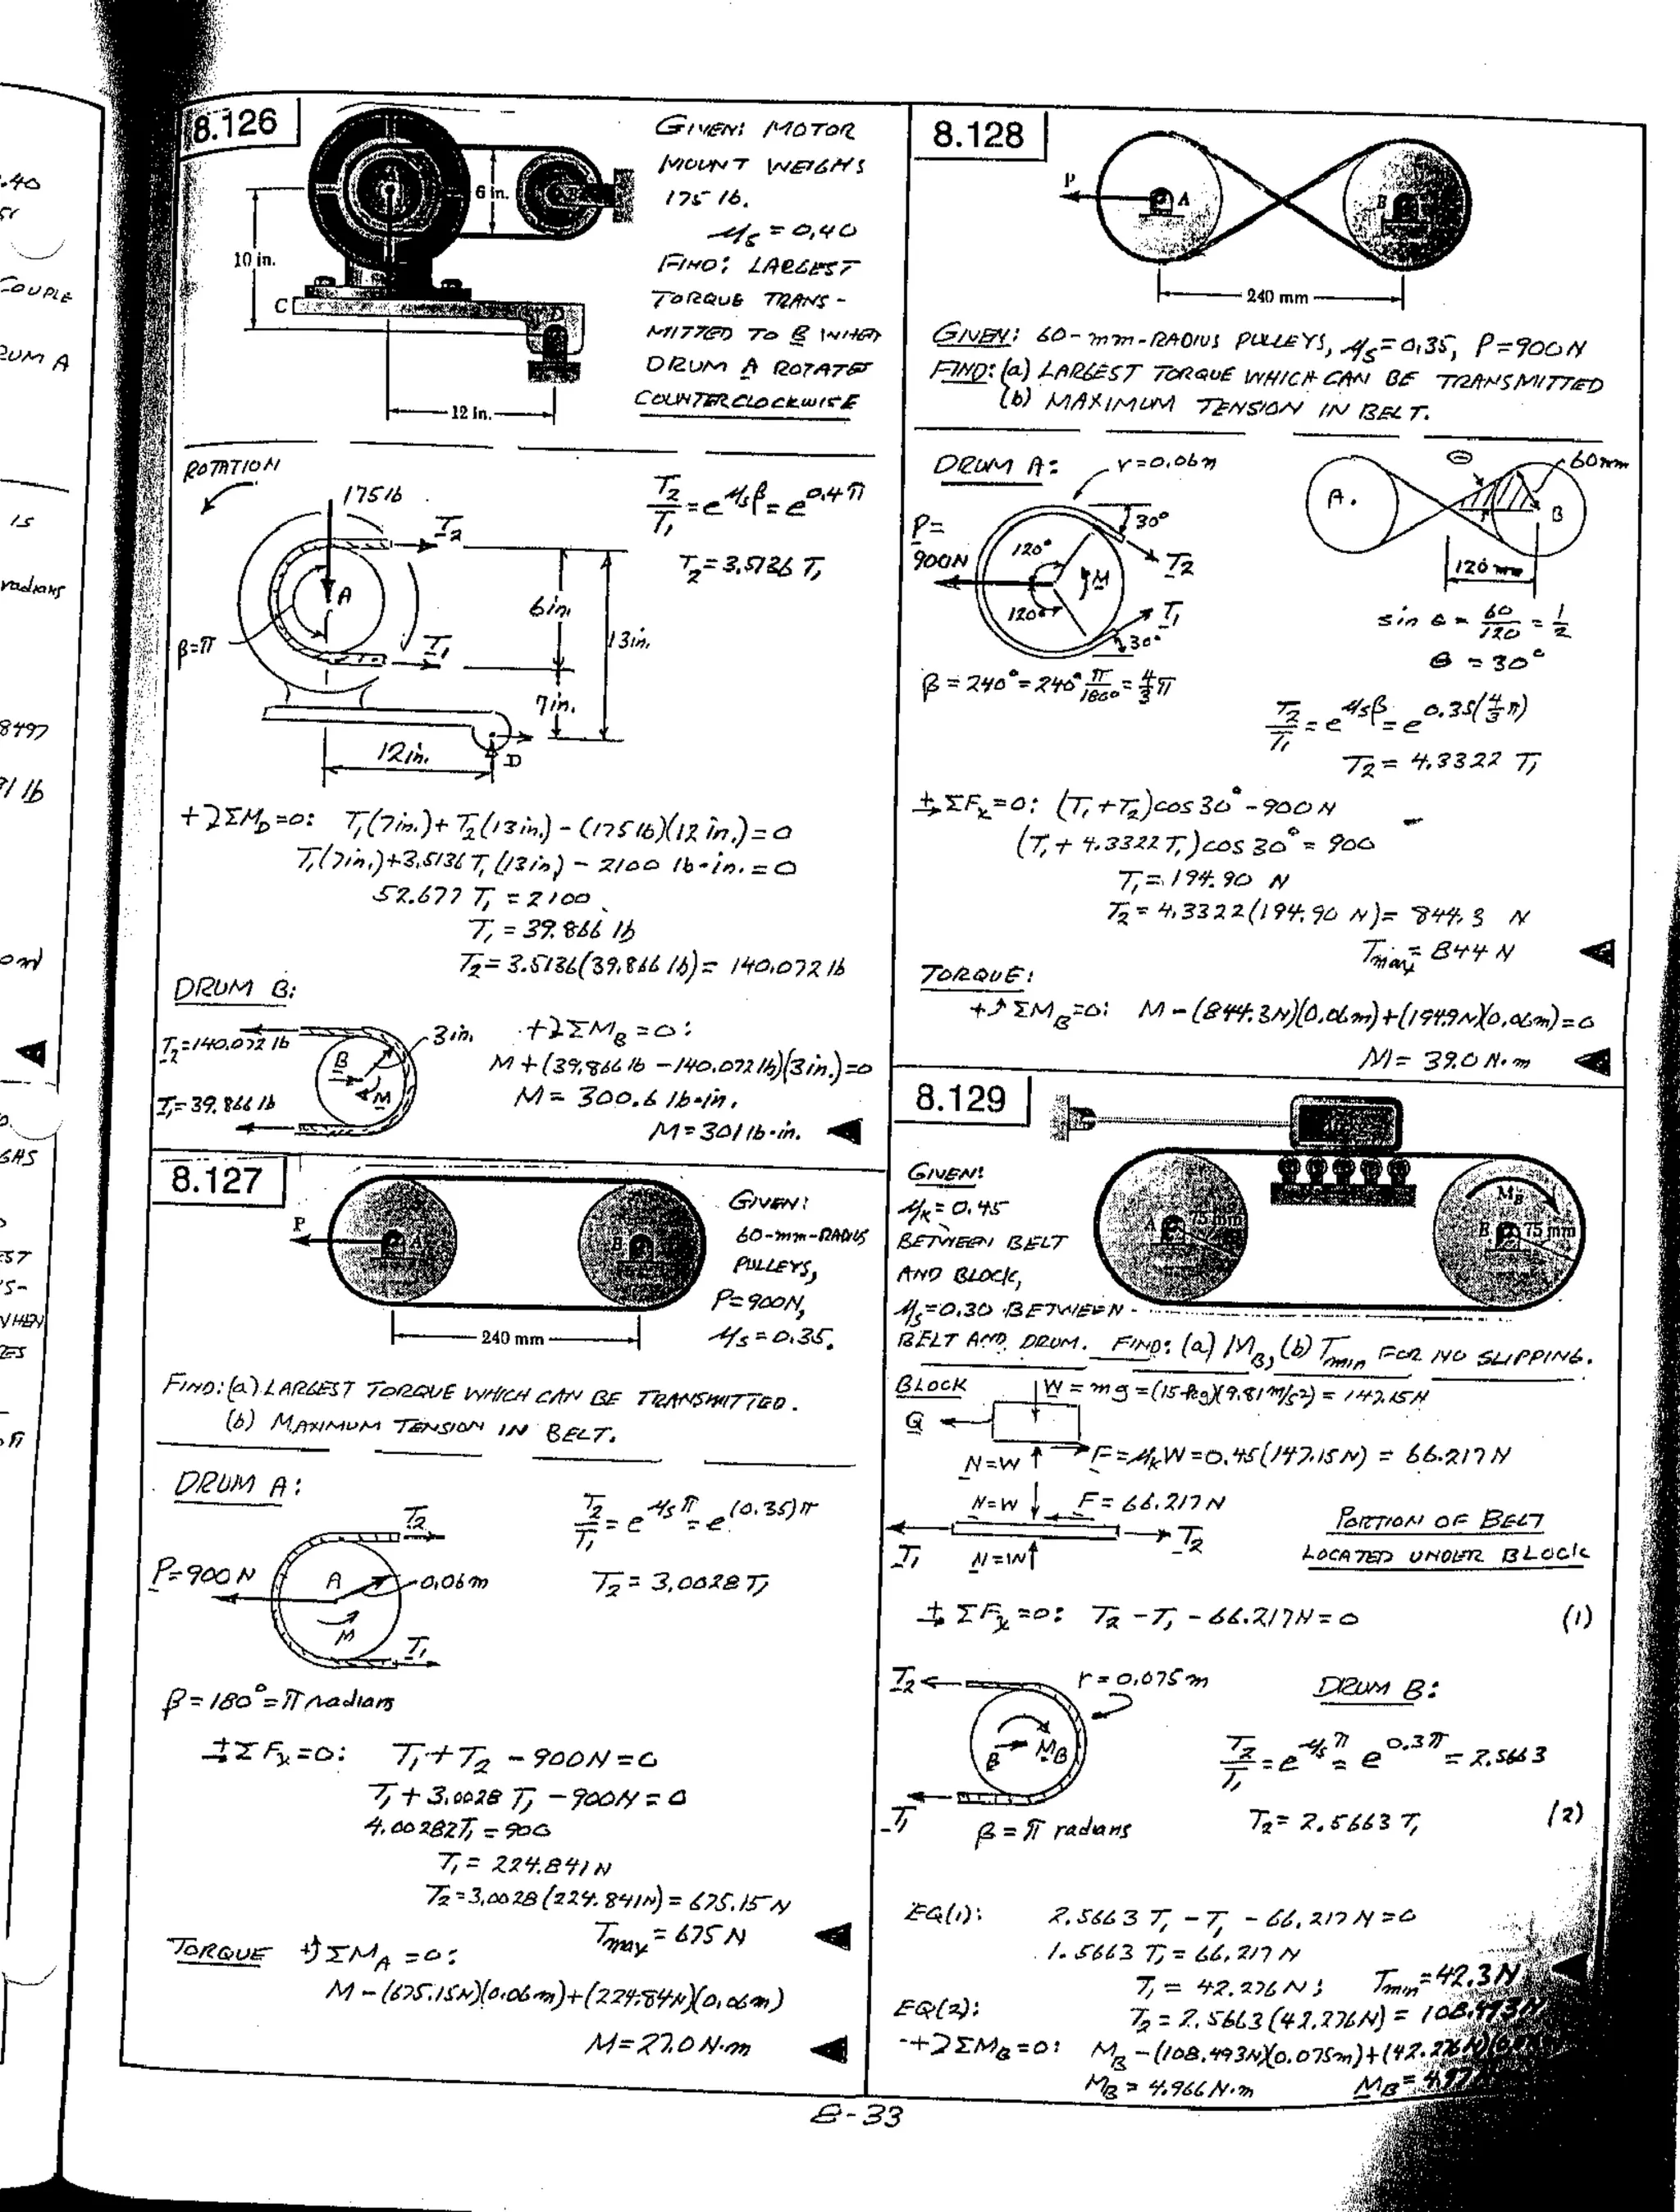 8.126
GIVEN: MOTOR
MOUNT WEIGHS
175 lb.
μs = 0.40
FIND: LARGEST
TORQUE TRANS-
MITTED TO B WHEN
DRUM A ROTATES
COUNTERCLOCKWISE
6 in.
10 in.
C
D
12 in.
ROTATION
175 lb
T2
A
β=π
T1
6 in.
13 in.
7 in.
12 in.
D
T2/T1 = e^μsβ = e^0.4π
T2 = 3.5136 T1
+ΣMD=0: T1(7in.)+T2(13in.)-(175 lb)(12 in.)=0
T1(7in.)+3.5136 T1(13in) - 2100 lb·in. = 0
52.677 T1 = 2100
T1 = 39.866 lb
T2 = 3.5136(39.866 lb) = 140.072 lb
DRUM B:
T2=140.072 lb
3 in.
B
M
T1=39.866 lb
+ΣMB=0:
M+(39.866 lb -140.072 lb)(3in.)=0
M = 300.6 lb·in.
M=301 lb·in.
8.127
P
A
B
240 mm
GIVEN:
60-mm-RADIUS
PULLEYS,
P=900N,
μs=0.35.
FIND: (a) LARGEST TORQUE WHICH CAN BE TRANSMITTED.
(b) MAXIMUM TENSION IN BELT.
DRUM A:
T2
P=900 N
A
0.06m
M
T1
T2/T1 = e^μsπ = e^(0.35)π
T2 = 3.0028 T1
β = 180° = π radians
+ΣFx=0: T1+T2 -900N=0
T1+3.0028 T1 -900N=0
4.00282T1 = 900
T1 = 224.841 N
T2=3.0028(224.841N) = 675.15 N
Tmax = 675 N
TORQUE +ΣMA=0:
M-(675.15N)(0.06m)+(224.84N)(0.06m)
M=27.0 N·m
8.128
P
A
B
240 mm
GIVEN: 60-mm-RADIUS PULLEYS, μs=0.35, P=900N
FIND: (a) LARGEST TORQUE WHICH CAN BE TRANSMITTED
(b) MAXIMUM TENSION IN BELT.
DRUM A:
r=0.06m
P=
900N
120°
120°
M
30°
T2
T1
30°
θ
60mm
A.
B
120 mm
sin θ = 60/120 = 1/2
θ = 30°
β = 240° = 240° π/180° = 4/3 π
T2/T1 = e^μsβ = e^0.35(4/3 π)
T2 = 4.3322 T1
+ΣFx=0: (T1+T2)cos30°-900N
(T1+4.3322T1)cos30° = 900
T1 = 194.90 N
T2 = 4.3322(194.90 N) = 844.3 N
Tmax = 844 N
TORQUE:
+ΣMB=0: M-(844.3N)(0.06m)+(194.9N)(0.06m)=0
M = 39.0 N·m
8.129
GIVEN:
μk=0.45
BETWEEN BELT
AND BLOCK,
μs=0.30 BETWEEN
BELT AND DRUM. FIND: (a) MB, (b) Tmin FOR NO SLIPPING.
A
75 mm
MB
B
75 mm
BLOCK
W = mg = (15 kg)(9.81 m/s²) = 147.15N
Q
N=W
F=μkW=0.45(147.15N) = 66.217 N
N=W
F = 66.217 N
T1
T2
N=W
PORTION OF BELT
LOCATED UNDER BLOCK
+ΣFx=0: T2-T1-66.217N=0 (1)
T2
r=0.075m
B
MB
T1
β = π radians
DRUM B:
T2/T1 = e^μsπ = e^0.3π = 2.5663
T2 = 2.5663 T1 (2)
EQ(1): 2.5663 T1 - T1 - 66.217 N=0
1.5663 T1 = 66.217 N
T1 = 42.276 N; Tmin=42.3 N
EQ(2): T2 = 2.5663(42.276N) = 108.493N
+ΣMB=0: MB-(108.493N)(0.075m)+(42.276N)
MB = 4.966 N·m MB = 4.97
8-33
.40
COUPLE
DRUM A
IS
radians
8497
lb
GHS
EST
WHEN